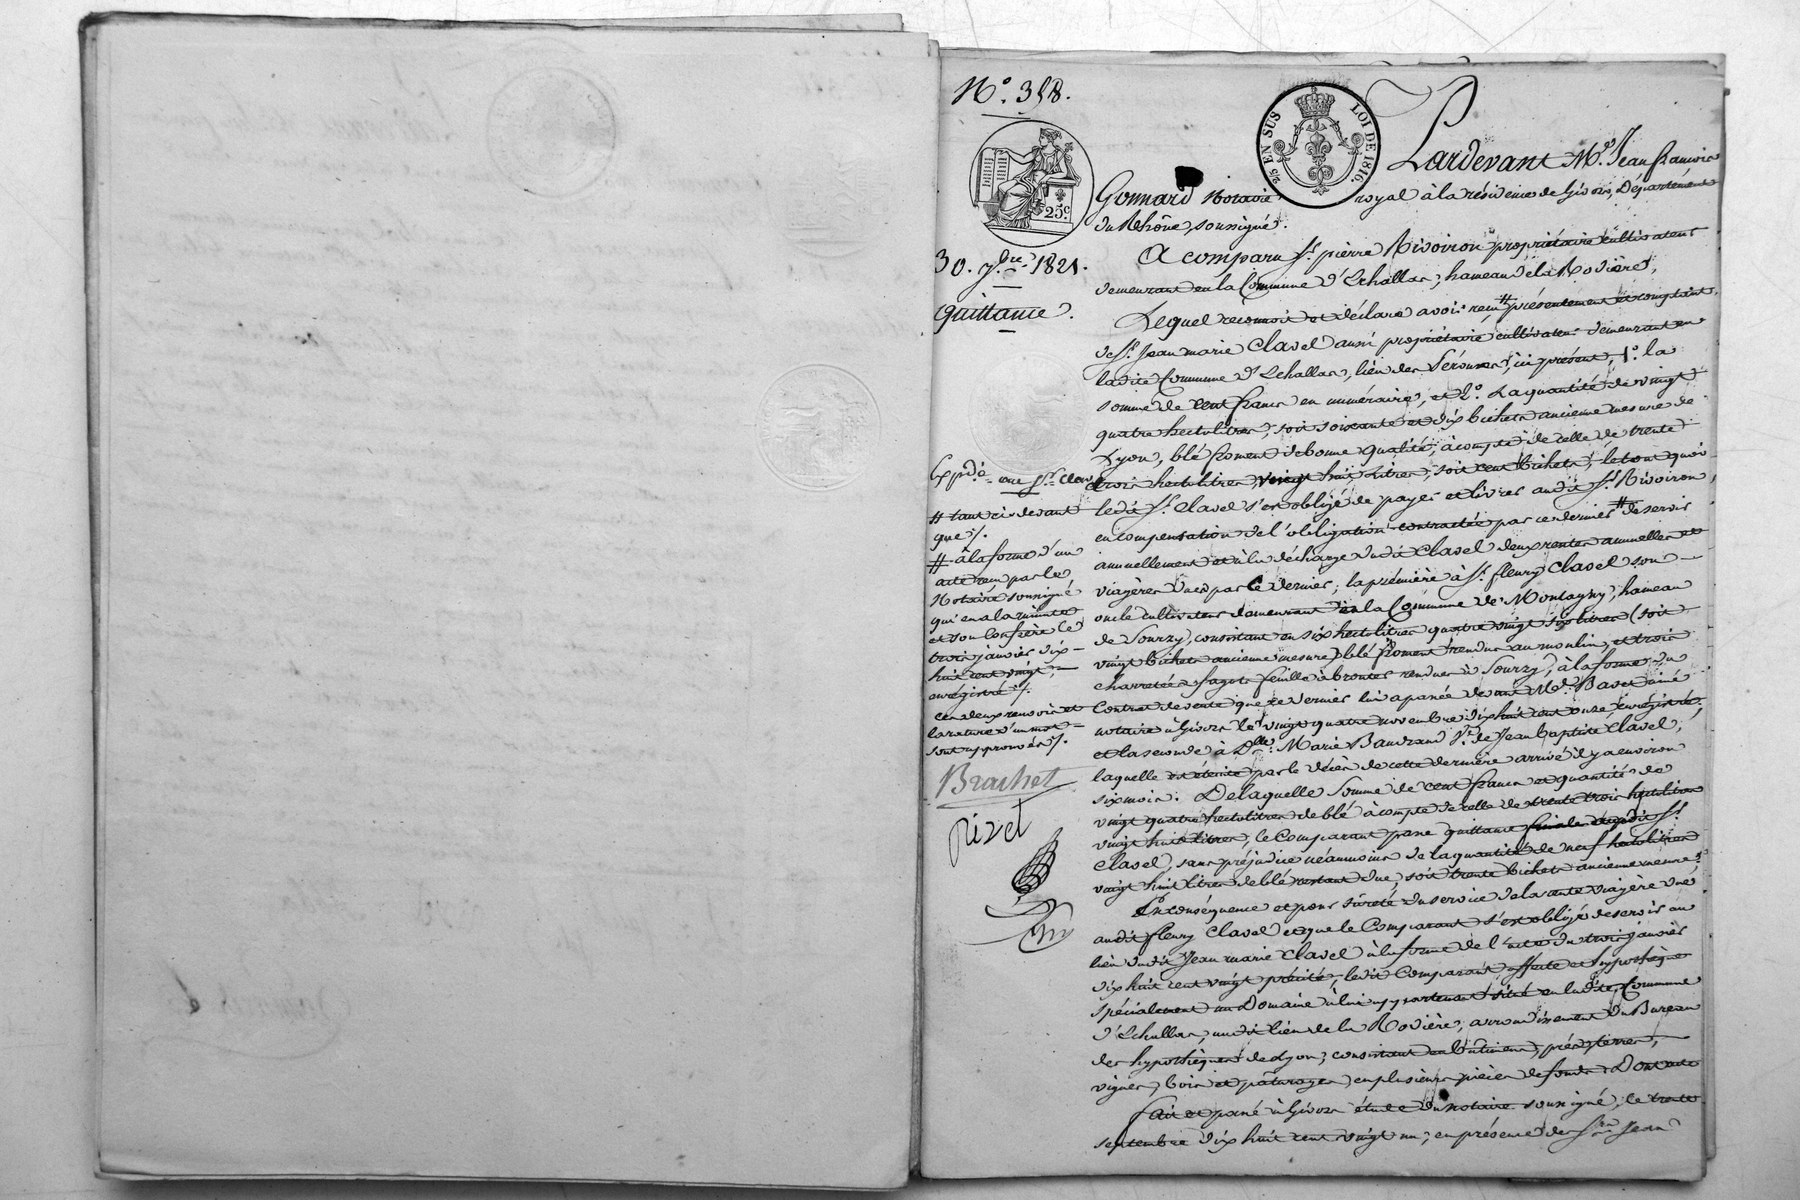 N.º 358.
2/5 EN SUS
LOI DE 1816.
25 c.
30. 7.bre 1821.
Quittance.
Pardevant M.e Jean françois
Gonnard Notaire royal à la résidence de Givors, Département
du Rhône, soussigné.
A comparu S.r pierre Rivoiron propriétaire cultivateur
demeurant en la Commune d'Echallas, hameau de la Rodière,
Lequel reconnoit et déclare avoir reçu # présentement et comptant
de S.r Jean marie Clavel aussi propriétaire cultivateur demeurant en
ladite Commune d'Echallas, lieu des , ici présent, 1.º la
somme de cent francs en numéraire, et 2.º La quantité de vingt
quatre hectolitres, soit soixante et dix bichets ancienne mesure de
Lyon, blé froment de bonne qualité, à compte de celle de trente
trois hectolitres, vingt huit Litres, soit cent bichets, le tout quoi
ledit S.r Clavel s'est obligé de payer et livrer audit S.r Rivoiron,
en compensation de l'obligation contractée par ce dernier # de servir
annuellement et à la décharge dudit Clavel deux rentes annuelles et
viagères dues par ce dernier; la première à S.r fleury Clavel son
oncle cultivateur demeurant en la Commune de Montagny, hameau
de Sourzy, consistant en six hectolitres quatre vingt six litres (soit
vingt bichets ancienne mesure) blé froment rendus au moulin, et trois
charretées fagots feuille à brouter rendues à Sourzy, à la forme du
Contrat de vente que ce dernier lui a passé devant M.e Bavet ainé
notaire à Givors le vingt quatre novembre dix huit cent onze, enrégistré,
et la seconde à D.lle Marie Baudrand V.e de Jean baptiste Clavel,
laquelle est éteinte par le décès de cette dernière arrivé il y a environ
six mois. De laquelle somme de cent francs et quantité de
vingt quatre hectolitres de blé à compte de celle de trente trois hectolitres
vingt huit litres, le Comparant passe quittance finale audit S.r
Clavel, sans préjudice néanmoins de la quantité de neuf hectolitres
vingt huit litres de blé restant due, soit trente bichets ancienne mesure.
En conséquence et pour sûreté du service de la rente viagère due
audit fleury Clavel et que le Comparant s'est obligé de servir au
lieu dudit Jean marie Clavel à la forme de l'acte du trois janvier
dix huit cent vingt précité, ledit Comparant affecte et hypothèque
spécialement un Domaine à lui appartenant situé en ladite Commune
d'Echallas, audit lieu de la Rodière, arrondissement du Bureau
des hypothèques de Lyon; consistant en bâtimens, prés, terres,
vignes, bois et pâturages, en plusieurs pièces de fonds. Dont acte
fait et passé à Givors étude du notaire soussigné, le trente
septembre dix huit cent vingt un; en présence de S.rs Jean
Expéd.é une S.r Clavel
# tant ci-devant
que /.
# à la forme d'un
acte reçu par le
Notaire soussigné
qui en a la minute
et son Confrère le
trois janvier dix-
huit cent vingt,
enrégistré /.
ces deux renvois et
la rature d'un mot
sont approuvés /.
Brachet
Rivet